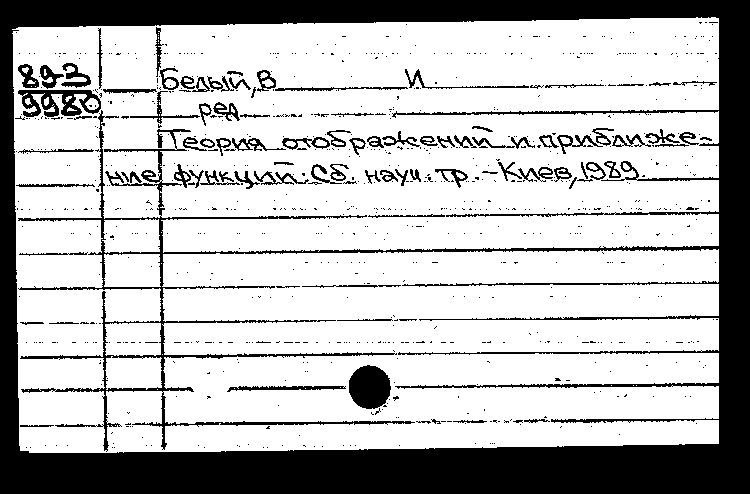 89-3
9980
Белый, В И.
ред
Теория отображений и приближе-
ние функций: Сб. науч. тр. - Киев, 1989.